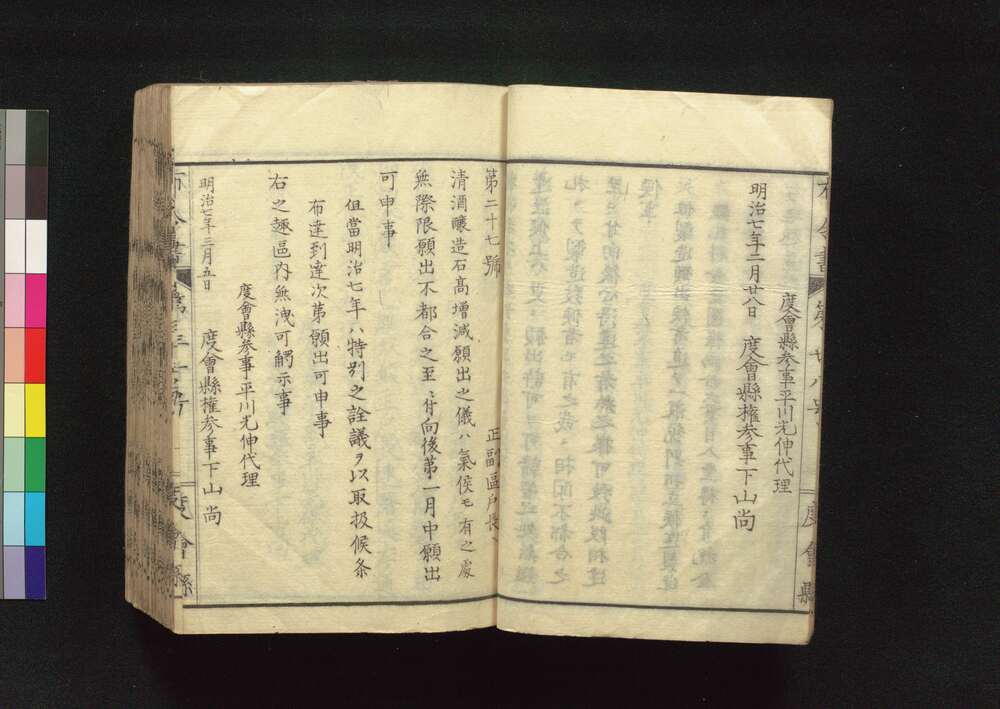 度會縣参事平川光伸代理
明治七年二月廿八日 度會縣權参事下山尚
度會縣
第二十七號 正副區戸長
清酒釀造石髙增減願出之儀ハ氣候モ有之處
無際限願出不都合之至ニ付向後第一月中願出
可申事
但當明治七年ハ特別之詮議ヲ以取扱候条
布達到達次第願出可申事
右之趣區内無洩可觸示事
度會縣参事平川光伸代理
明治七年三月五日 度會縣權参事下山尚
度會縣